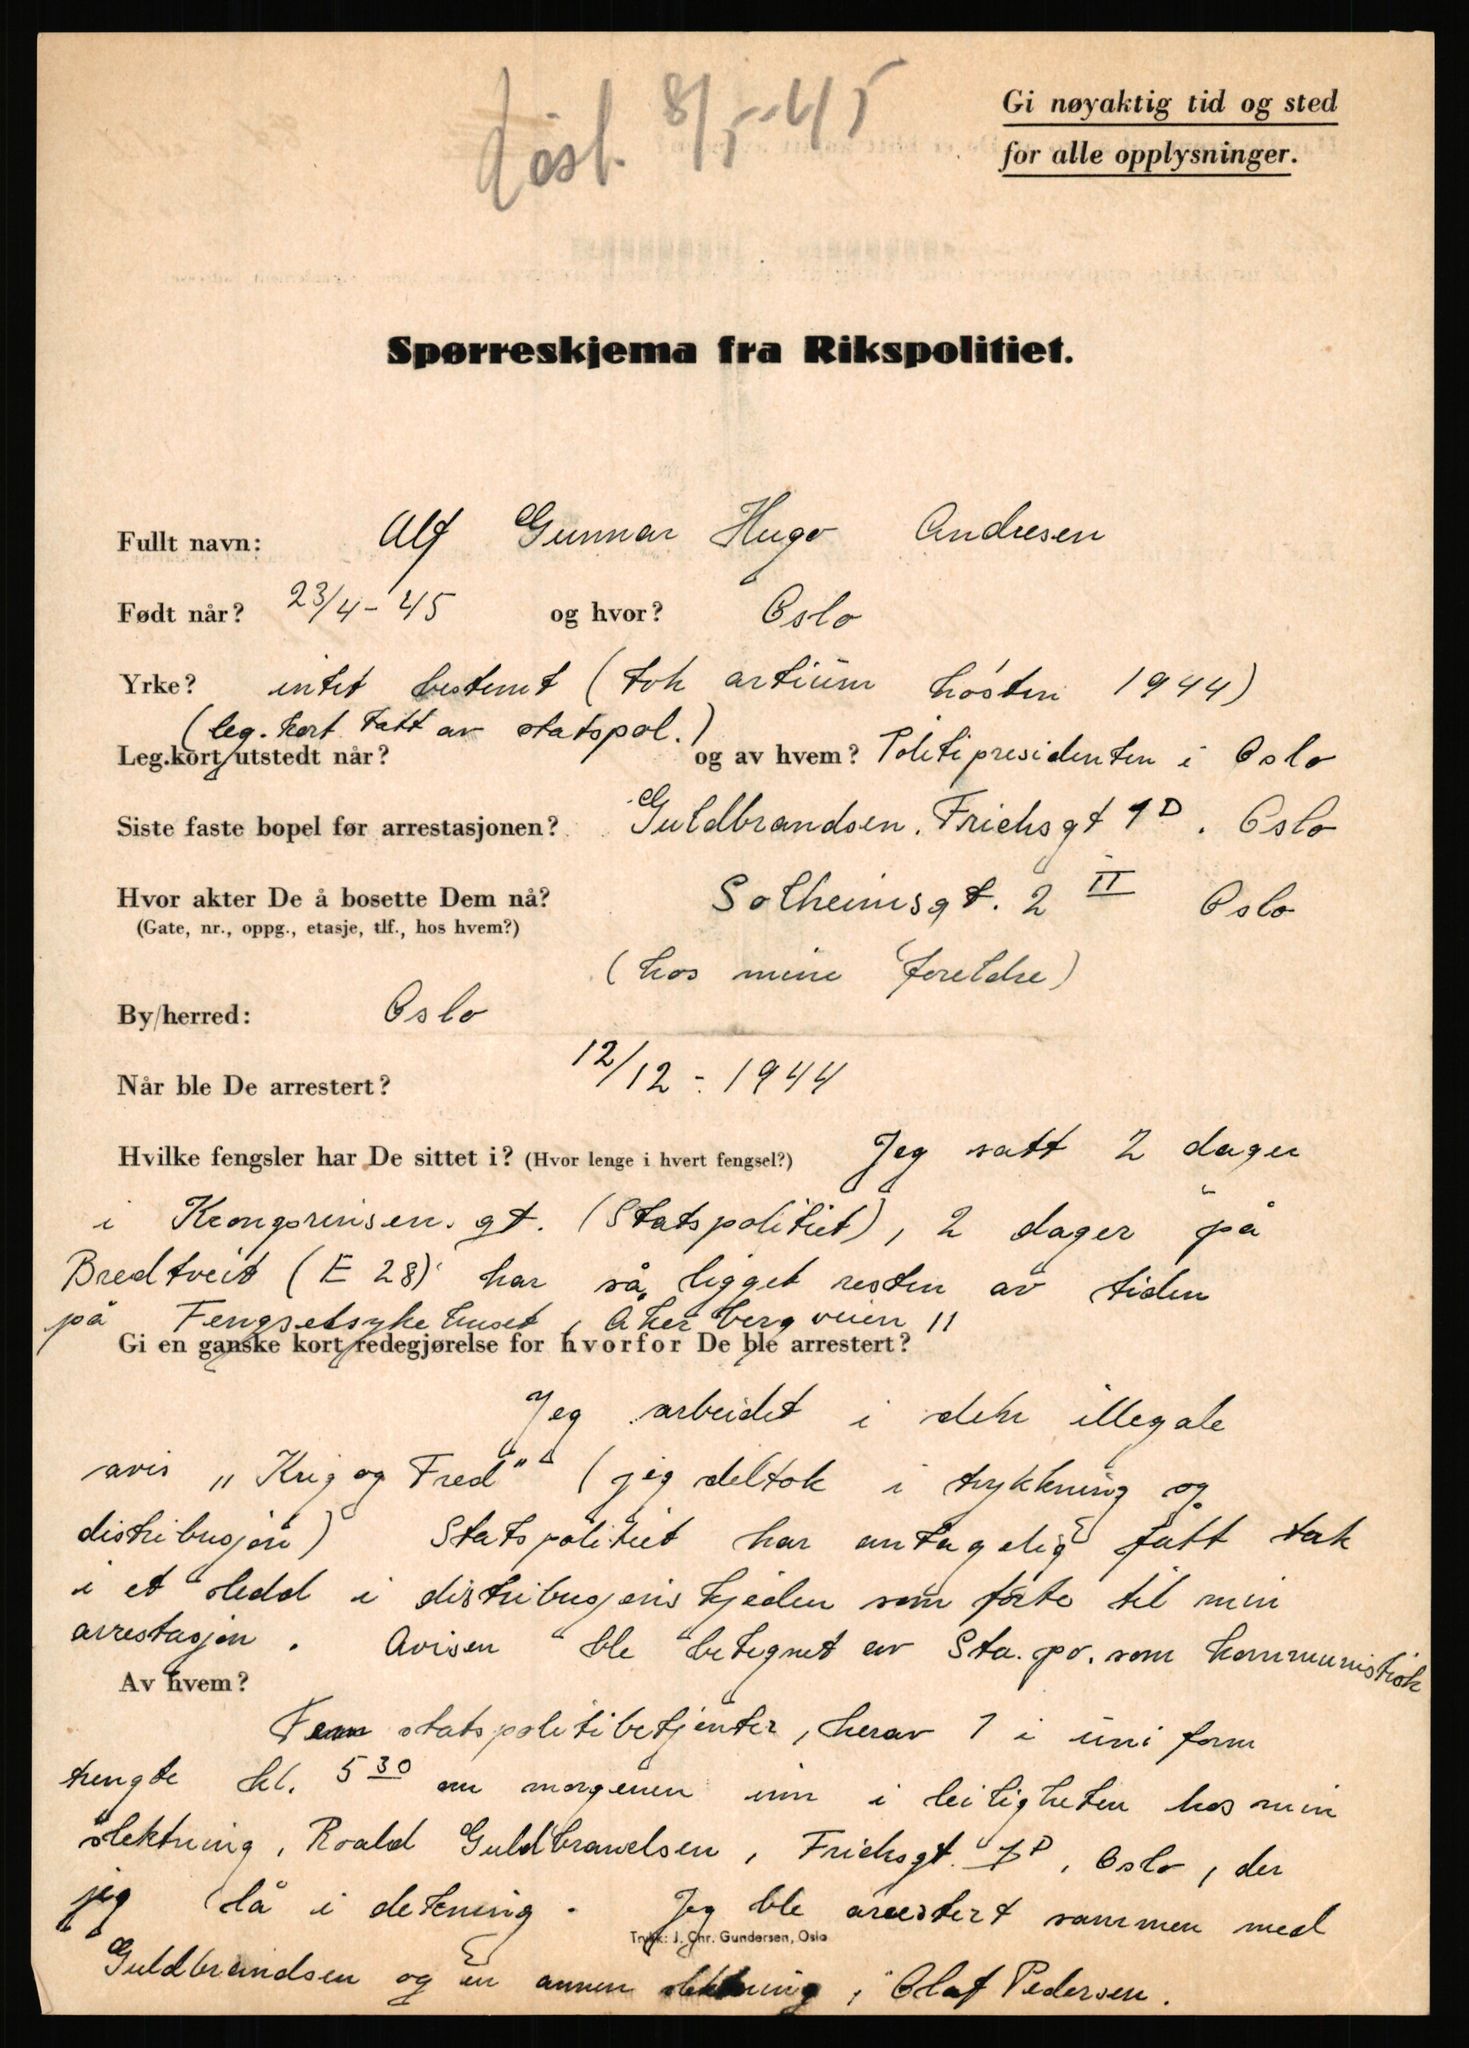 Løsl. 8/5-45
Gi nøyaktig tid og sted
for alle opplysninger.
Spørreskjema fra Rikspolitiet.
Fullt navn: Alf Gunnar Hugo Andresen
Født når? 23/4-45 og hvor? Oslo
Yrke? intet bestemt (tok artium høsten 1944)
(leg.kort tatt av statspol.)
Leg.kort utstedt når? og av hvem? Politipresidenten i Oslo
Siste faste bopel før arrestasjonen? Guldbrandsen. Frichsgt 1D. Oslo
Hvor akter De å bosette Dem nå? Solheimsgt. 2 II Oslo
(Gate, nr., oppg., etasje, tlf., hos hvem?)
(hos mine foreldre)
By/herred: Oslo
Når ble De arrestert? 12/12-1944
Hvilke fengsler har De sittet i? (Hvor lenge i hvert fengsel?) Jeg satt 2 dager
i Kronprinsen.gt. (Statspolitiet), 2 dager på
Bredtveit (E 28) har så ligget resten av tiden
på Fengselsykehuset, Akerbergveien 11
Gi en ganske kort redegjørelse for hvorfor De ble arrestert?
Jeg arbeidet i den illegale
avis „Krig og Fred" (jeg deltok i trykkning og
distribusjon) Statspolitiet har antagelig fått tak
i et ledd i distribusjonskjeden som førte til min
arrestasjon. Avisen ble betegnet av Sta.po. som kommunistisk
Av hvem?
Fem statspolitibetjenter, herav 1 i uniform
trengte kl. 5 30 om morgenen inn i leiligheten hos min
slektning, Roald Guldbrandsen, Frichsgt. 1D, Oslo, der
jeg lå i dekning. Jeg ble arrestert sammen med
Trykk: J. Chr. Gundersen, Oslo
Guldbrandsen og en annen slektning, Olaf Pedersen.